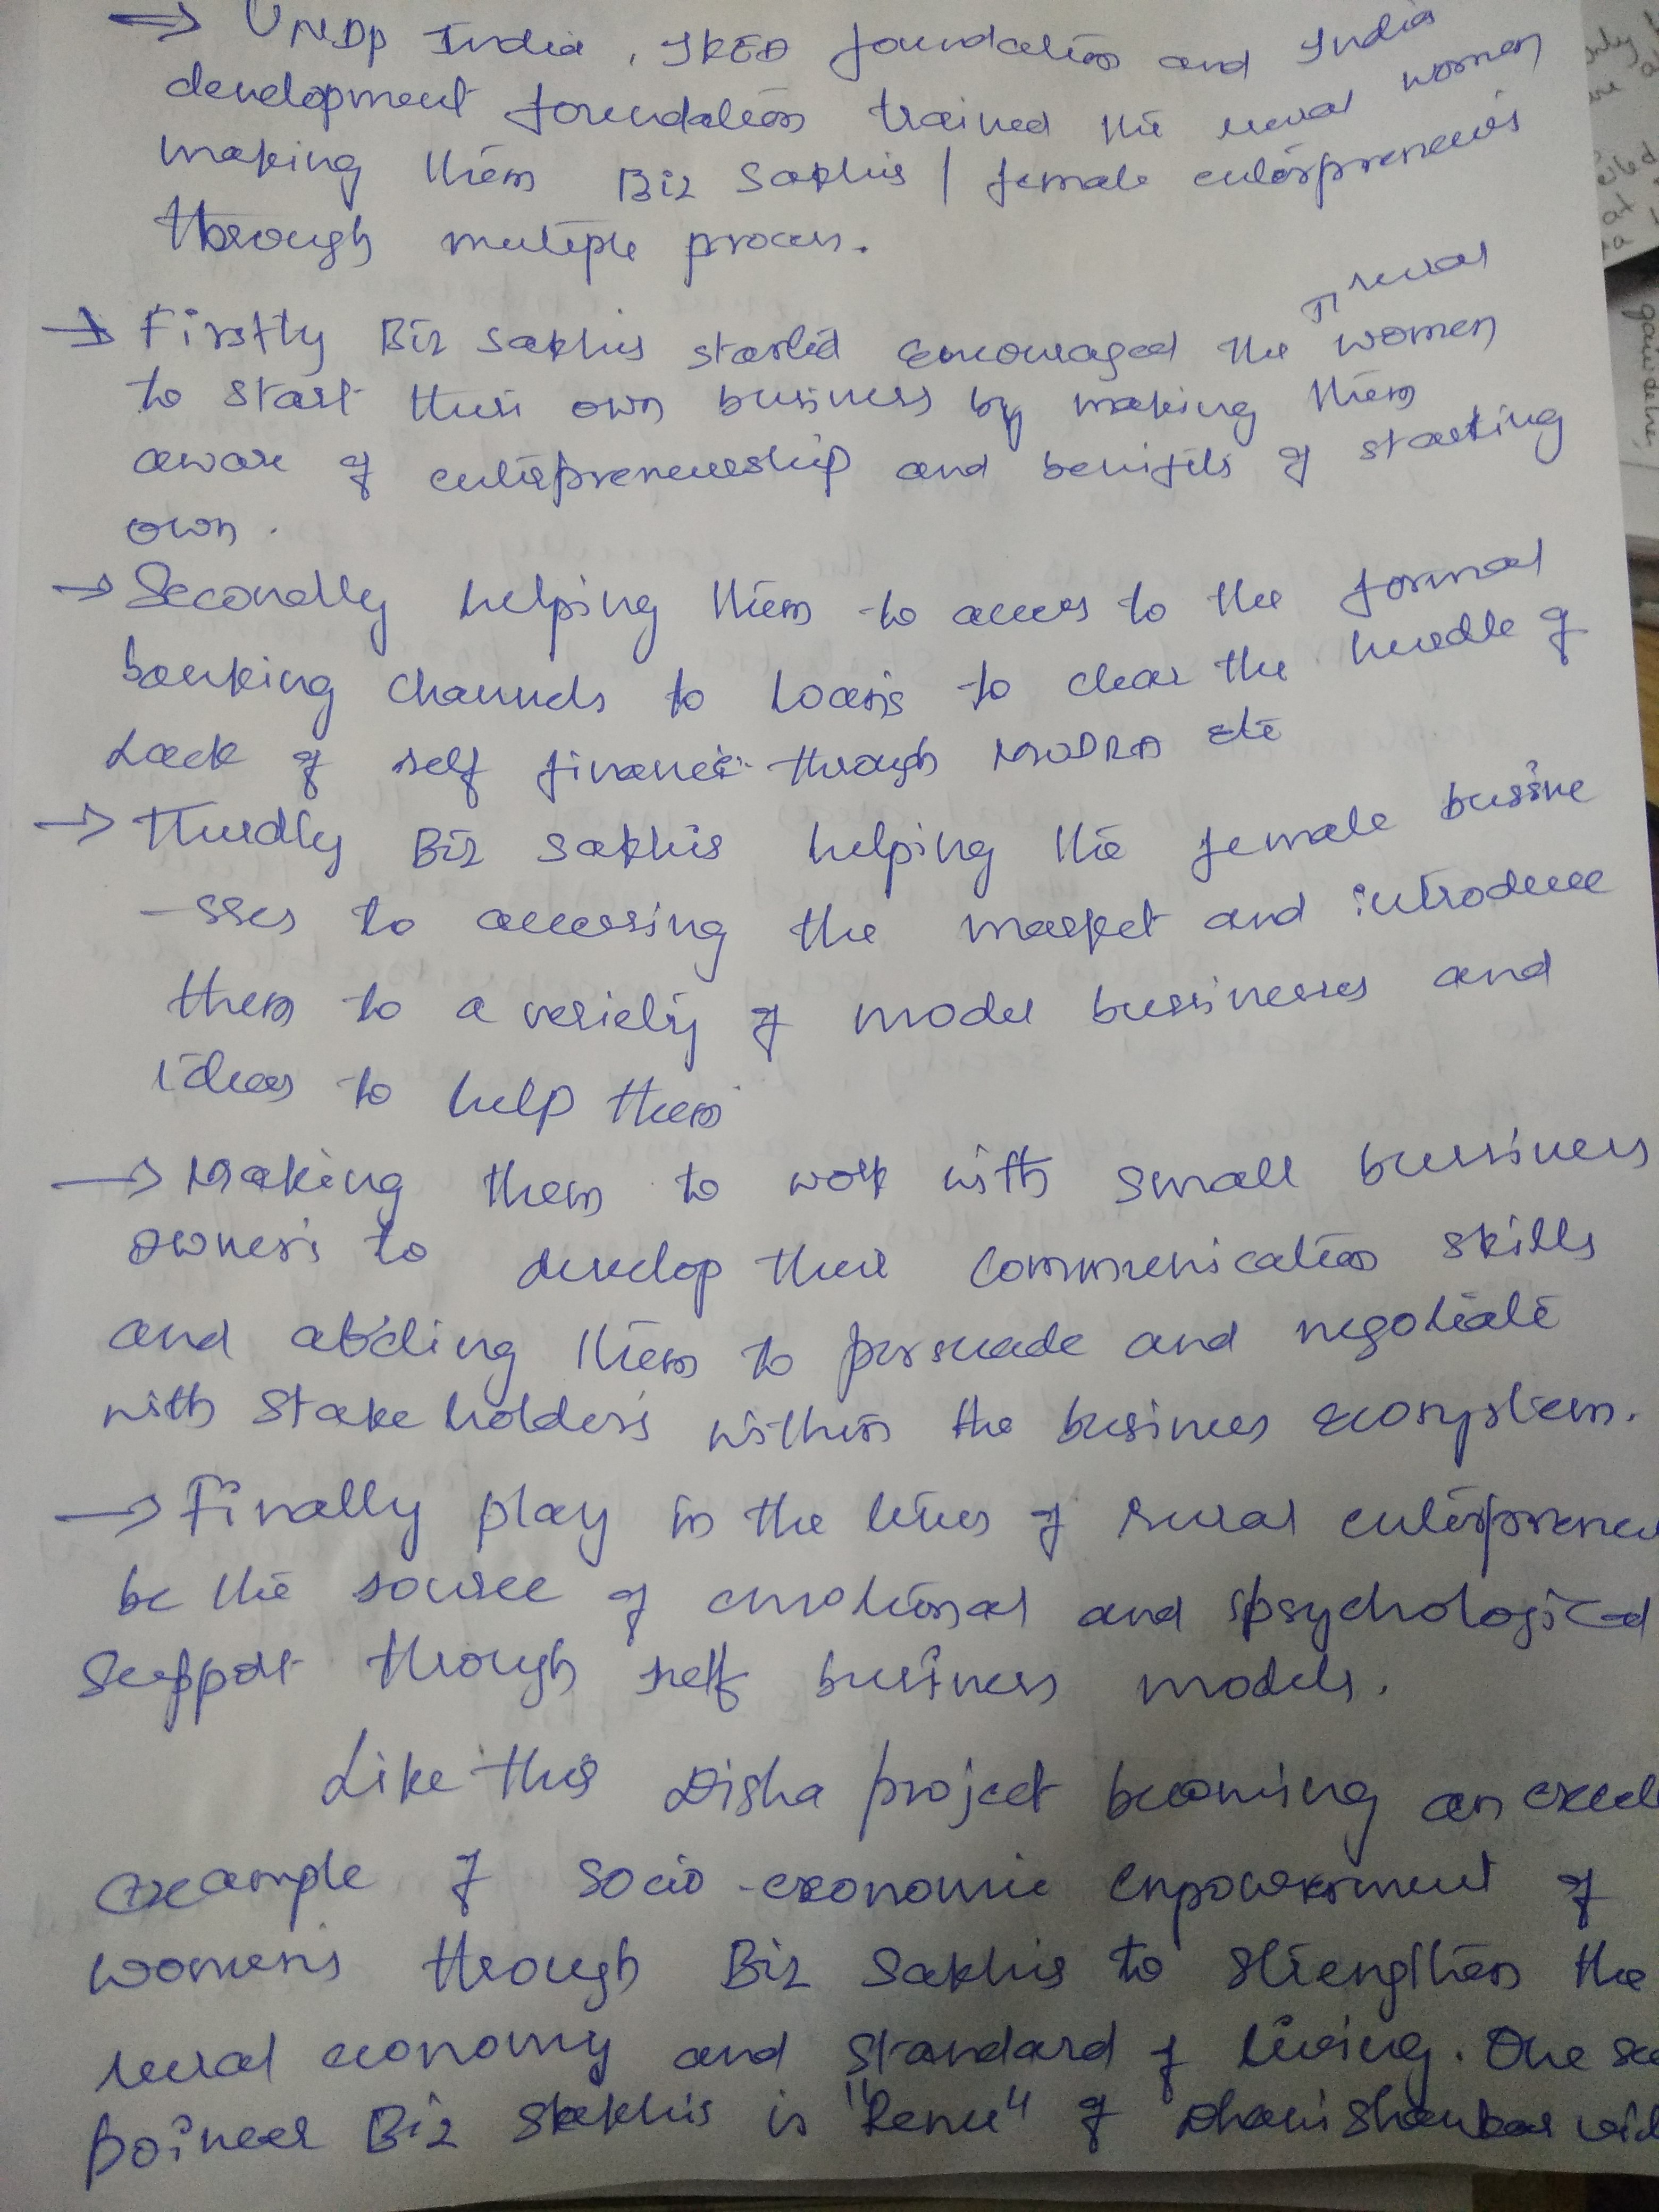 → UNDP India, IKEA foundation and India
development foundation trained the rural women
making them Biz Sakhis / female enterpreneurs
through multiple process.
→ Firstly Biz Sakhis started encouraged the rural women
to start their own business by making them
aware of enterpreneurship and benifits of starting
own.
→ Secondly helping them to access to the formal
banking channels to Loans to clear the hurdle of
Lack of self finance through MUDRA etc
→ Thirdly Biz Sakhis helping the female bussine
-sses to accessing the market and introduce
them to a veriety of model bussinesses and
ideas to help them
→ Making them to work with small bussiness
owners to develop their communication skills
and them to persuade and negotiate
with Stake holders within the business ecosystem.
→ Finally play in the lives of rural enterpreneu
be the source of emotional and psychological
Support through self business models.
Like this Disha project becoming an excell
example of Socio-economic empowerment of
womens through Biz Sakhis to strengthen the
rural economy and standard of living. One
poineer Biz Sakhis is "Renu" of